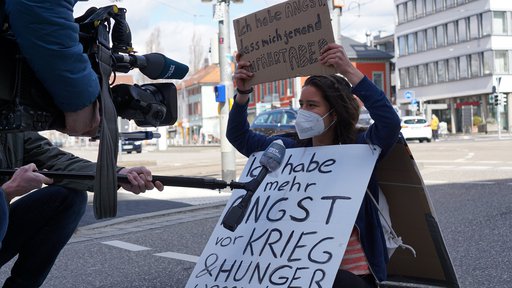 Ich habe ANGST
dass mich jemand
ANFÄHRT ABER
Ich habe
mehr
ANGST
vor KRIEG
& HUNGER